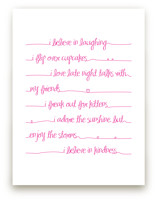 i believe in laughing
i flip over cupcakes
i love late night talks with
my friends
i freak out for kittens
i adore the sunshine but
enjoy the storms
i believe in kindness